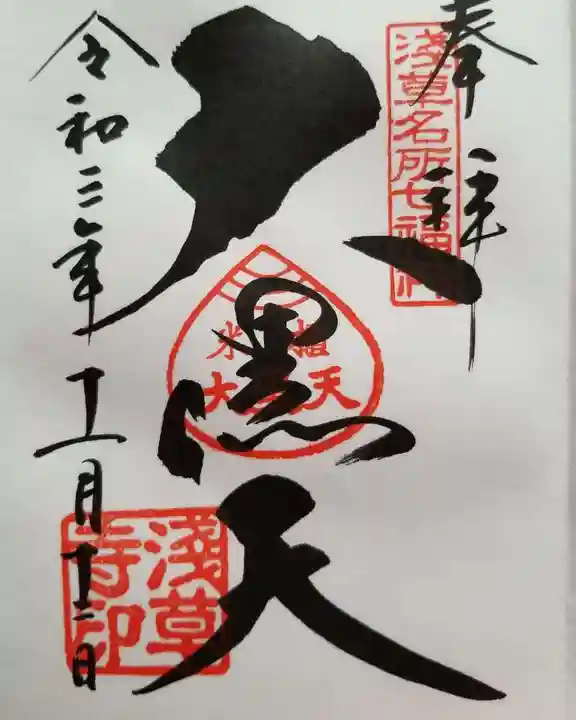 奉拝
淺草名所七福神
大黒天
令和三年十一月十二日
淺草寺印